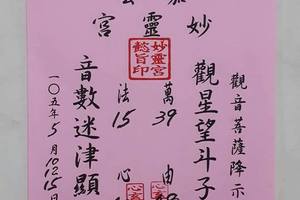 妙靈宮
妙靈宮
懿旨印
觀音菩薩降示
觀星望斗子
萬 39 由
法 15 心
音數迷津顯
一〇五年5月10 12 15日